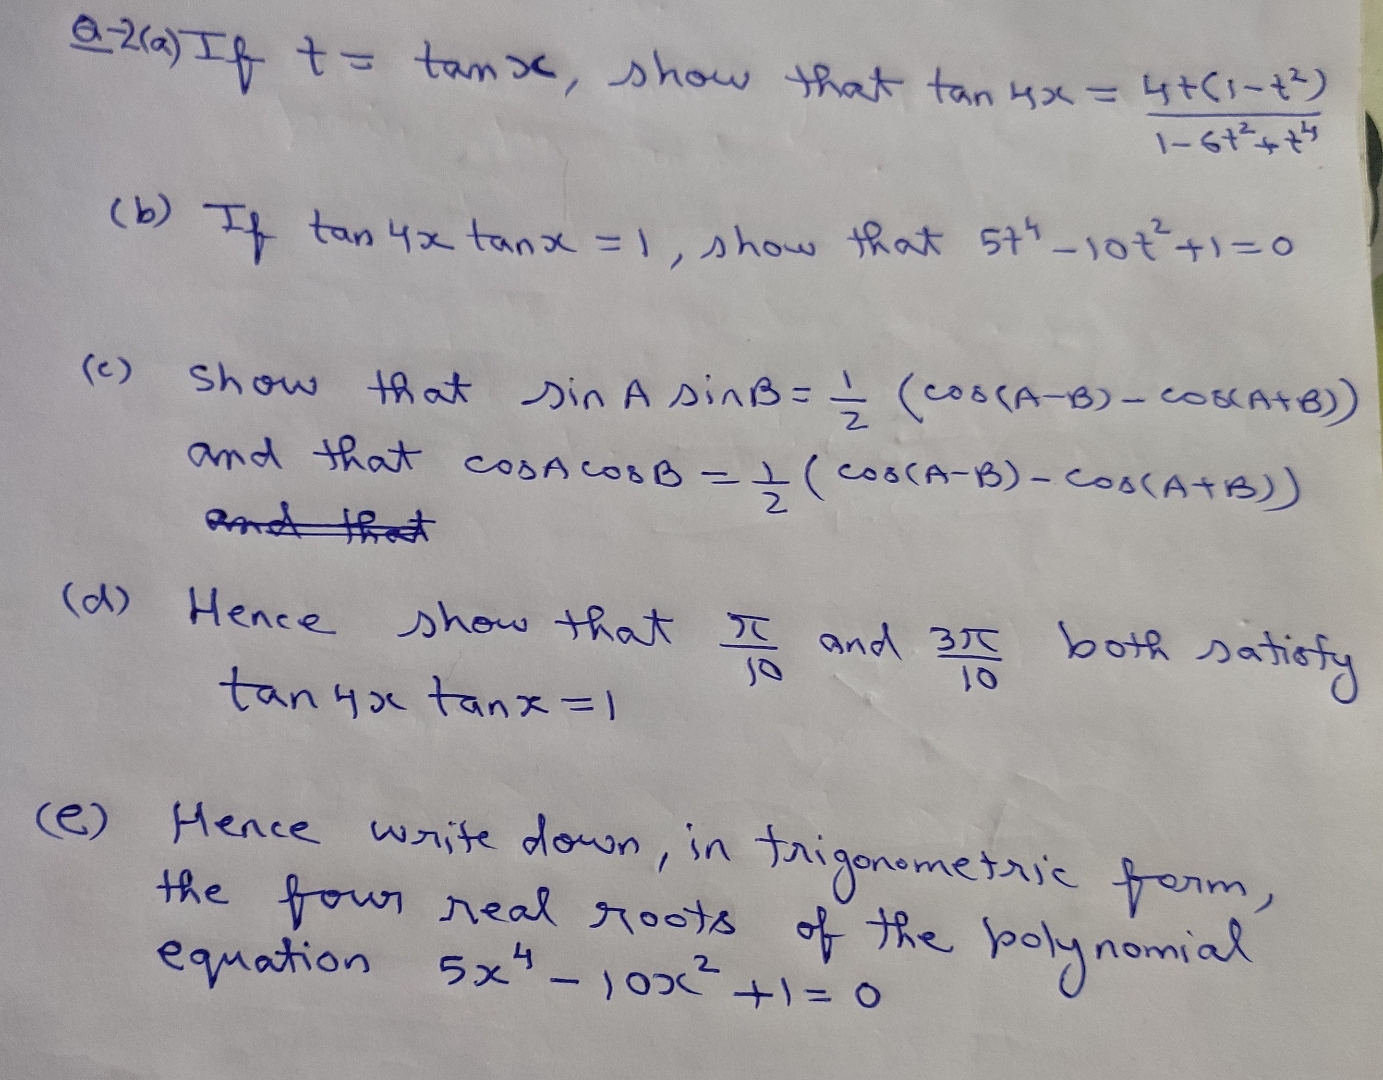 Q-2(a) If t = tanx, show that tan 4x = 4t(1-t²)/(1-6t²+t⁴)
(b) If tan 4x tanx = 1, show that 5t⁴-10t²+1=0
(c) Show that sin A sinB = 1/2 (cos(A-B)-cos(A+B))
and that cosAcosB = 1/2 (cos(A-B)-cos(A+B))
and that
(d) Hence show that π/10 and 3π/10 both satisfy
tan 4x tanx = 1
(e) Hence write down, in trigonometric form,
the four real roots of the polynomial
equation 5x⁴-10x²+1=0